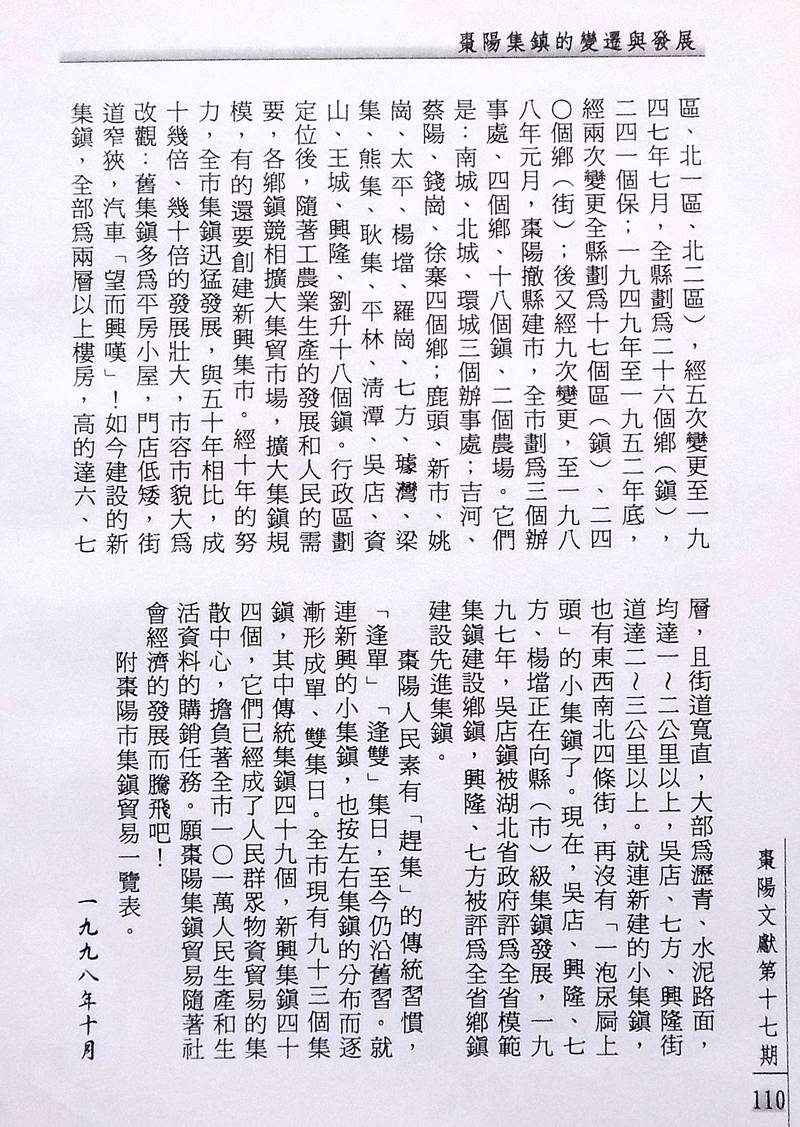 棗陽集鎮的變遷與發展
區、北一區、北二區），經五次變更至一九
四七年七月，全縣劃爲二十六個鄉（鎮），
二四一個保；一九四九年至一九五二年底，
經兩次變更全縣劃爲十七個區（鎮）、二四
〇個鄉（街）；後又經九次變更，至一九八
八年元月，棗陽撤縣建市，全市劃爲三個辦
事處、四個鄉、十八個鎮、二個農場。它們
是：南城、北城、環城三個辦事處；吉河、
蔡陽、錢崗、徐寨四個鄉；鹿頭、新市、姚
崗、太平、楊壋、羅崗、七方、璩灣、梁
集、熊集、耿集、平林、清潭、吳店、資
山、王城、興隆、劉升十八個鎮。行政區劃
定位後，隨著工農業生產的發展和人民的需
要，各鄉鎮競相擴大集貿市場，擴大集鎮規
模，有的還要創建新興集市。經十年的努
力，全市集鎮迅猛發展，與五十年相比，成
十幾倍、幾十倍的發展壯大，市容市貌大爲
改觀：舊集鎮多爲平房小屋，門店低矮，街
道窄狹，汽車「望而興嘆」！如今建設的新
集鎮，全部爲兩層以上樓房，高的達六、七
層，且街道寬直，大部爲瀝青、水泥路面，
均達一～二公里以上，吳店、七方、興隆街
道達二～三公里以上。就連新建的小集鎮，
也有東西南北四條街，再沒有「一泡尿屙上
頭」的小集鎮了。現在，吳店、興隆、七
方、楊壋正在向縣（市）級集鎮發展，一九
九七年，吳店鎮被湖北省政府評爲全省模範
集鎮建設鄉鎮，興隆、七方被評爲全省鄉鎮
建設先進集鎮。
棗陽人民素有「趕集」的傳統習慣，
「逢單」「逢雙」集日，至今仍沿舊習。就
連新興的小集鎮，也按左右集鎮的分布而逐
漸形成單、雙集日。全市現有九十三個集
鎮，其中傳統集鎮四十九個，新興集鎮四十
四個，它們已經成了人民群眾物資貿易的集
散中心，擔負著全市一〇一萬人民生產和生
活資料的購銷任務。願棗陽集鎮貿易隨著社
會經濟的發展而騰飛吧！
附棗陽市集鎮貿易一覽表。
一九九八年十月
棗陽文獻第十七期
110